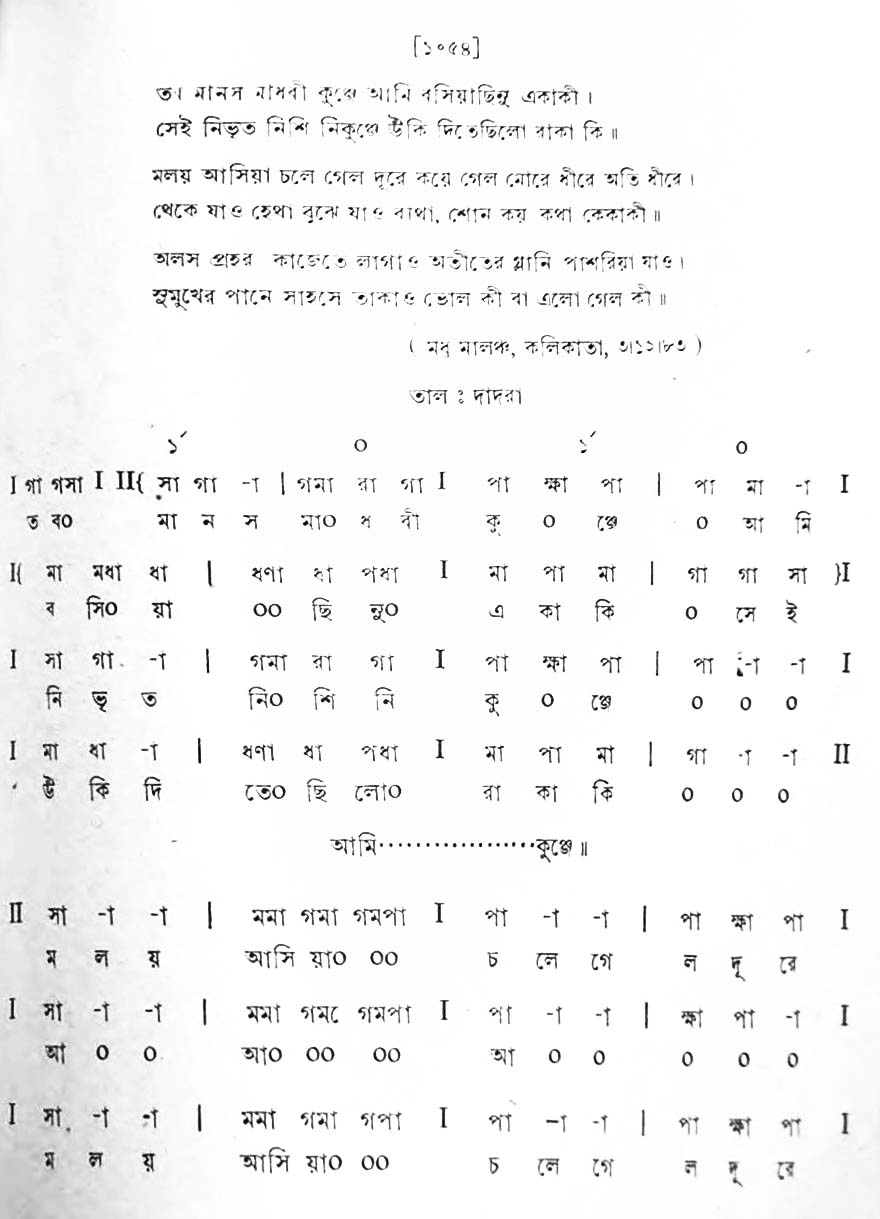 [১০৫৪]
তব মানস মাধবী কুঞ্জে আমি বসিয়াছিনু একাকী ।
সেই নিভৃত নিশি নিকুঞ্জে উঁকি দিতেছিলো রাকা কি ॥
মলয় আসিয়া চলে গেল দূরে কয়ে গেল মোরে ধীরে অতি ধীরে ।
থেকে যাও হেথা বুঝে যাও ব্যথা, শোন কয় কথা কেকাকী ॥
অলস প্রহর কাজেতে লাগাও অতীতের গ্লানি পাশরিয়া যাও ।
সুমুখের পানে সাহসে তাকাও ভোল কী বা এলো গেল কী ॥
( মধু মালঞ্চ, কলিকাতা, ৩।১২।৮৩ )
তাল ঃ দাদরা
১´ ০ ১´ ০
I গা গসা I II{ সা গা -া | গমা রা গা I পা ক্ষা পা | পা মা -া I
ত ব০ মা ন স মা০ ধ বী কু ০ ঞ্জে ০ আ মি
I{ মা মধা ধা | ধণা ধা পধা I মা পা মা | গা গা সা }I
ব সি০ য়া ০০ ছি নু০ এ কা কি ০ সে ই
I সা গা -া | গমা রা গা I পা ক্ষা পা | পা -া -া I
নি ভৃ ত নি০ শি নি কু ০ ঞ্জে ০ ০ ০
I মা ধা -া | ধণা ধা পধা I মা পা মা | গা -া -া II
উঁ কি দি তে০ ছি লো০ রা কা কি ০ ০ ০
আমি··················কুঞ্জে ॥
II সা -া -া | মমা গমা গমপা I পা -া -া | পা ক্ষা পা I
ম ল য় আসি য়া০ ০০ চ লে গে ল দূ রে
I সা -া -া | মমা গমা গমপা I পা -া -া | ক্ষা পা -া I
আ ০ ০ আ০ ০০ ০০ আ ০ ০ ০ ০ ০
I সা -া -া | মমা গমা গপা I পা -া -া | পা ক্ষা পা I
ম ল য় আসি য়া০ ০০ চ লে গে ল দূ রে